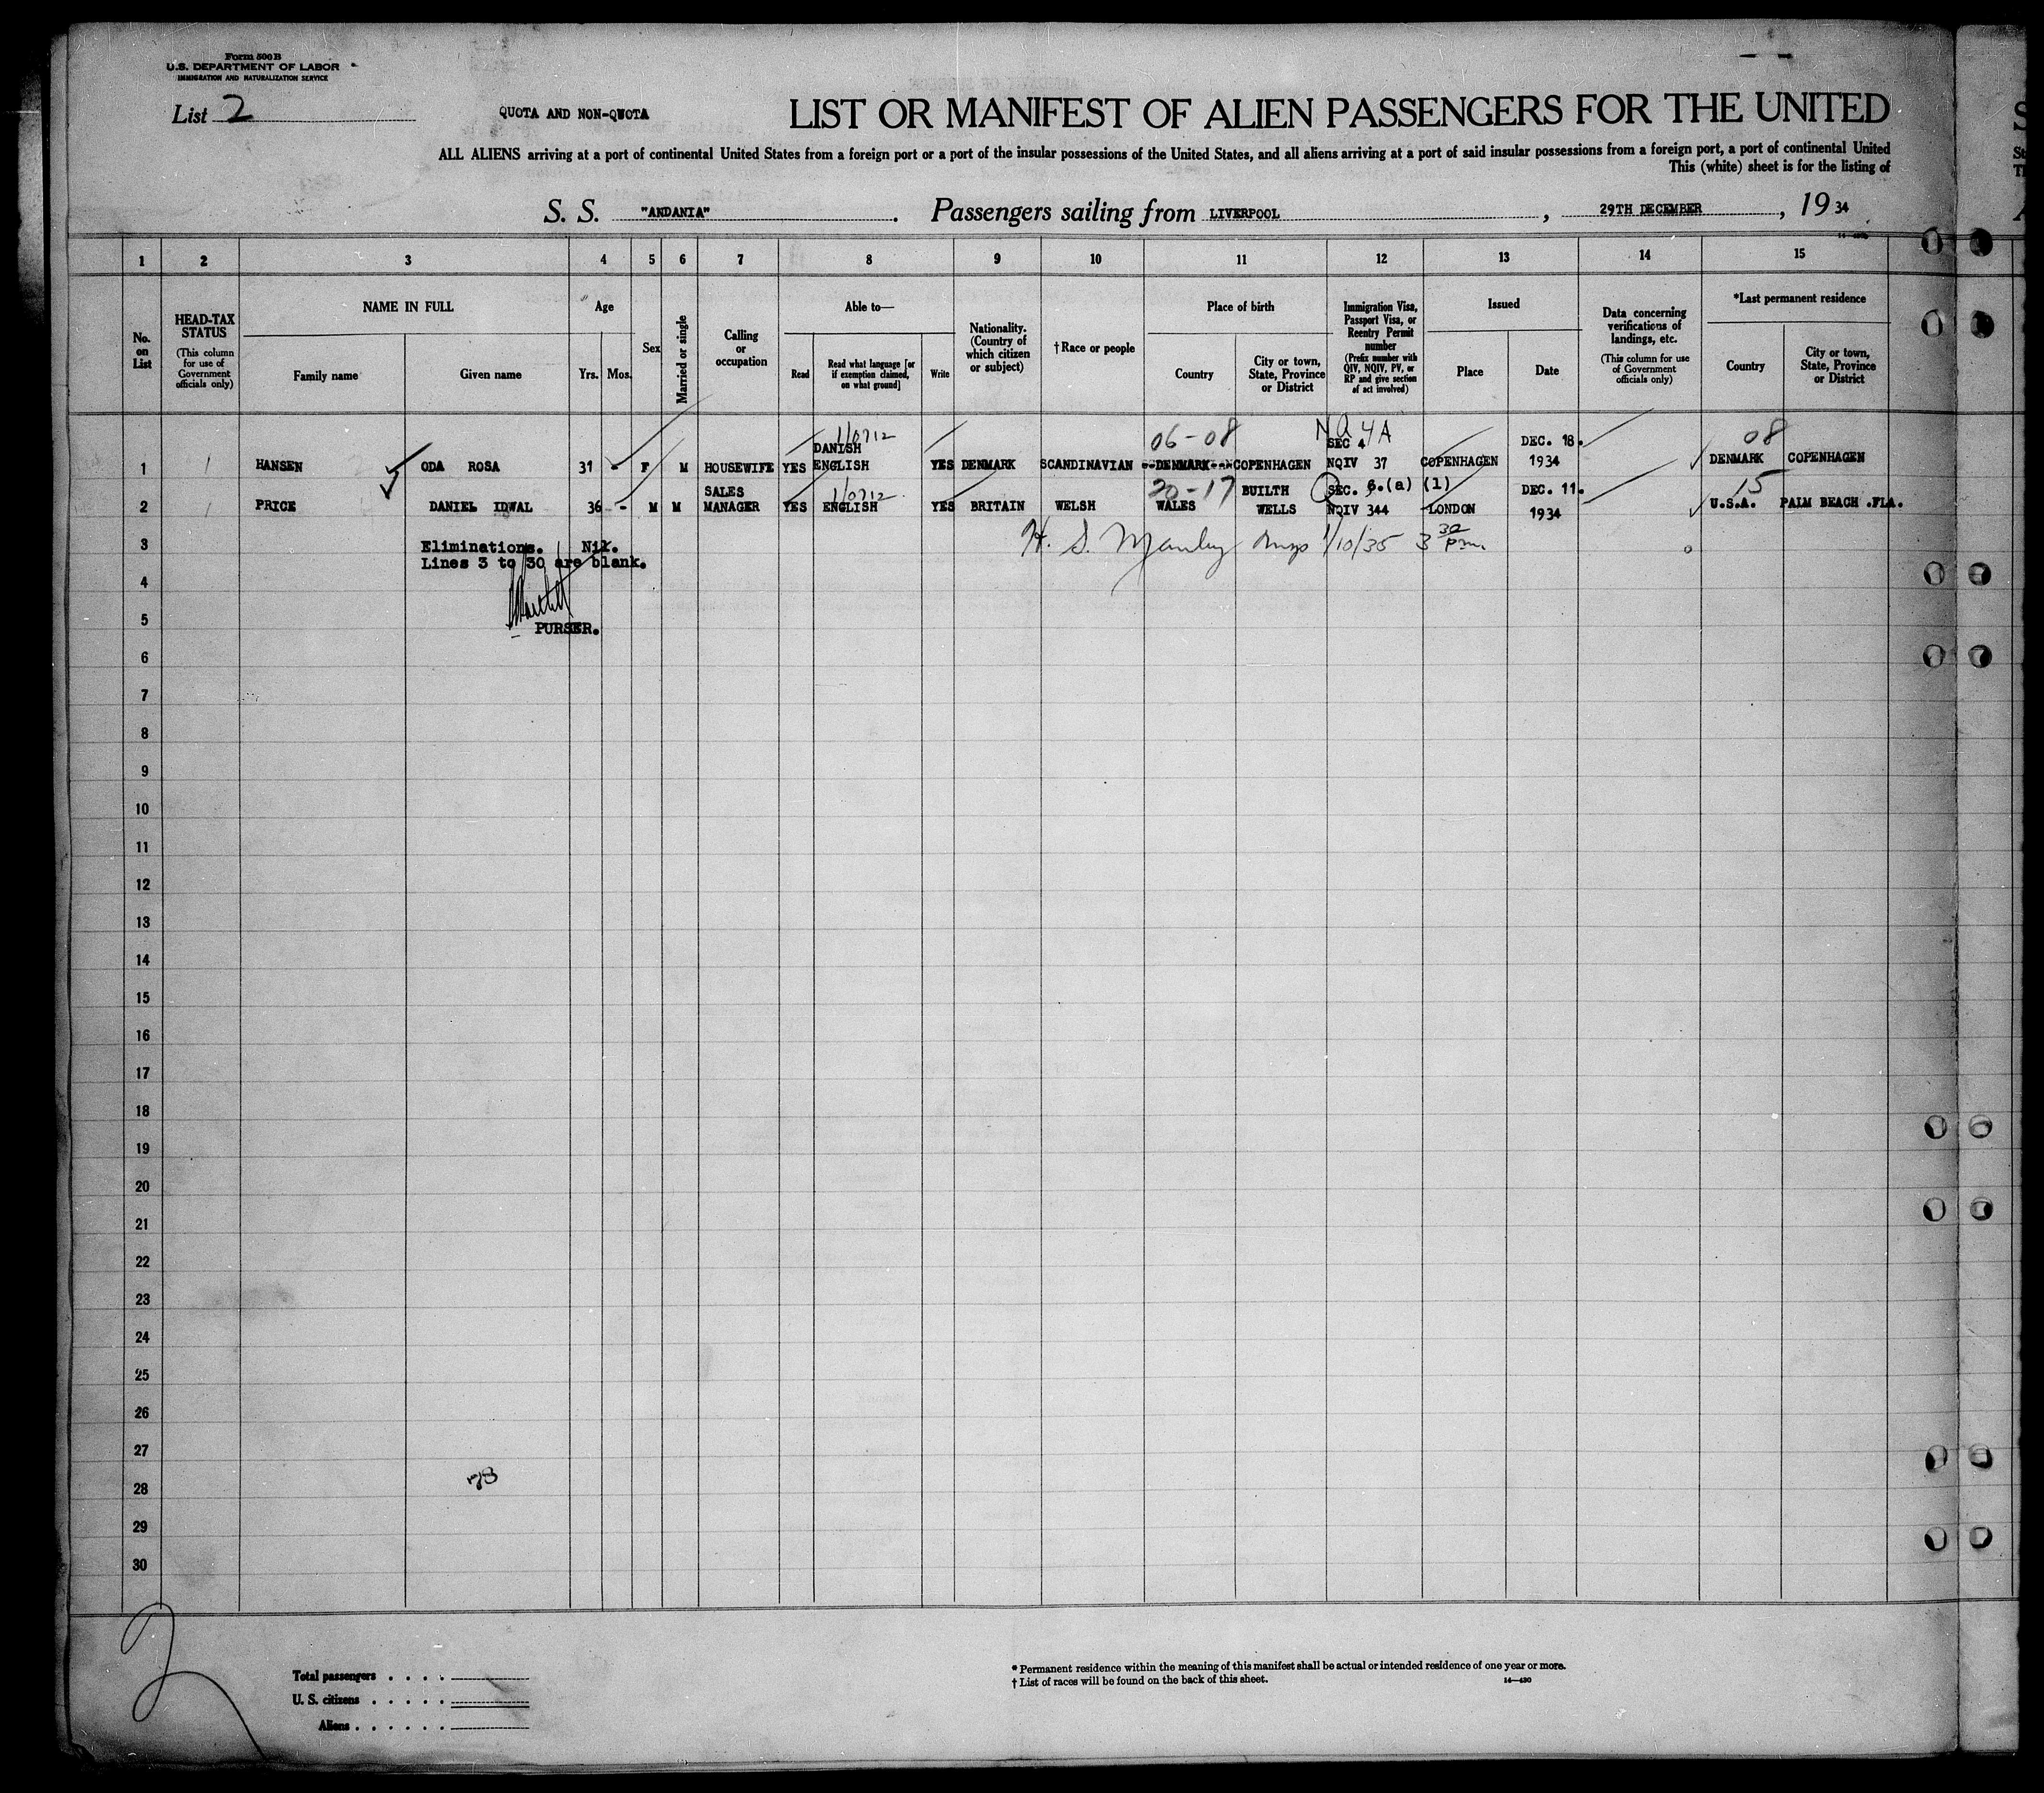 Form 500 B
U.S. DEPARTMENT OF LABOR
IMMIGRATION AND NATURALIZATION SERVICE
List 2
QUOTA AND NON-QUOTA
LIST OR MANIFEST OF ALIEN PASSENGERS FOR THE UNITED
ALL ALIENS arriving at a port of continental United States from a foreign port or a port of the insular possessions of the United States, and all aliens arriving at a port of said insular possessions from a foreign port, a port of continental United
This (white) sheet is for the listing of
S. S. "ANDANIA". Passengers sailing from LIVERPOOL, 29TH DECEMBER, 19 34
1 2 3 4 5 6 7 8 9 10 11 12 13 14 15
No. on List
HEAD-TAX STATUS
(This column for use of Government officials only)
NAME IN FULL
Family name
Given name
Age
Yrs. Mos.
Sex
Married or single
Calling or occupation
Able to—
Read
Read what language [or if exemption claimed, on what ground]
Write
Nationality. (Country of which citizen or subject)
† Race or people
Place of birth
Country
City or town, State, Province or District
Immigration Visa, Passport Visa, or Reentry Permit number
(Prefix number with QIV, NQIV, PV, or RP and give section of act involved)
Issued
Place
Date
Data concerning verifications of landings, etc.
(This column for use of Government officials only)
*Last permanent residence
Country
City or town, State, Province or District
110712 06-08 NQ 4A 08
DANISH SEC 4 DEC. 18.
1 HANSEN ODA ROSA 31 - F M HOUSEWIFE YES ENGLISH YES DENMARK SCANDINAVIAN DENMARK COPENHAGEN NQIV 37 COPENHAGEN 1934 DENMARK COPENHAGEN
SALES 110712 20-17 BUILTH SEC. 6.(a) (1) DEC. 11. 15
2 PRICE DANIEL IDWAL 36 - M M MANAGER YES ENGLISH YES BRITAIN WELSH WALES WELLS NQIV 344 LONDON 1934 U.S.A. PALM BEACH .FLA.
3 Eliminations. Nil. H. S. Manley 1/10/35 3 30 pm.
Lines 3 to 30 are blank.
4
5 PURSER.
6
7
8
9
10
11
12
13
14
15
16
17
18
19
20
21
22
23
24
25
26
27
28
29
30
2
Total passengers . . . .
U. S. citizens . . . . .
Aliens . . . . . .
* Permanent residence within the meaning of this manifest shall be actual or intended residence of one year or more.
† List of races will be found on the back of this sheet.
14—430